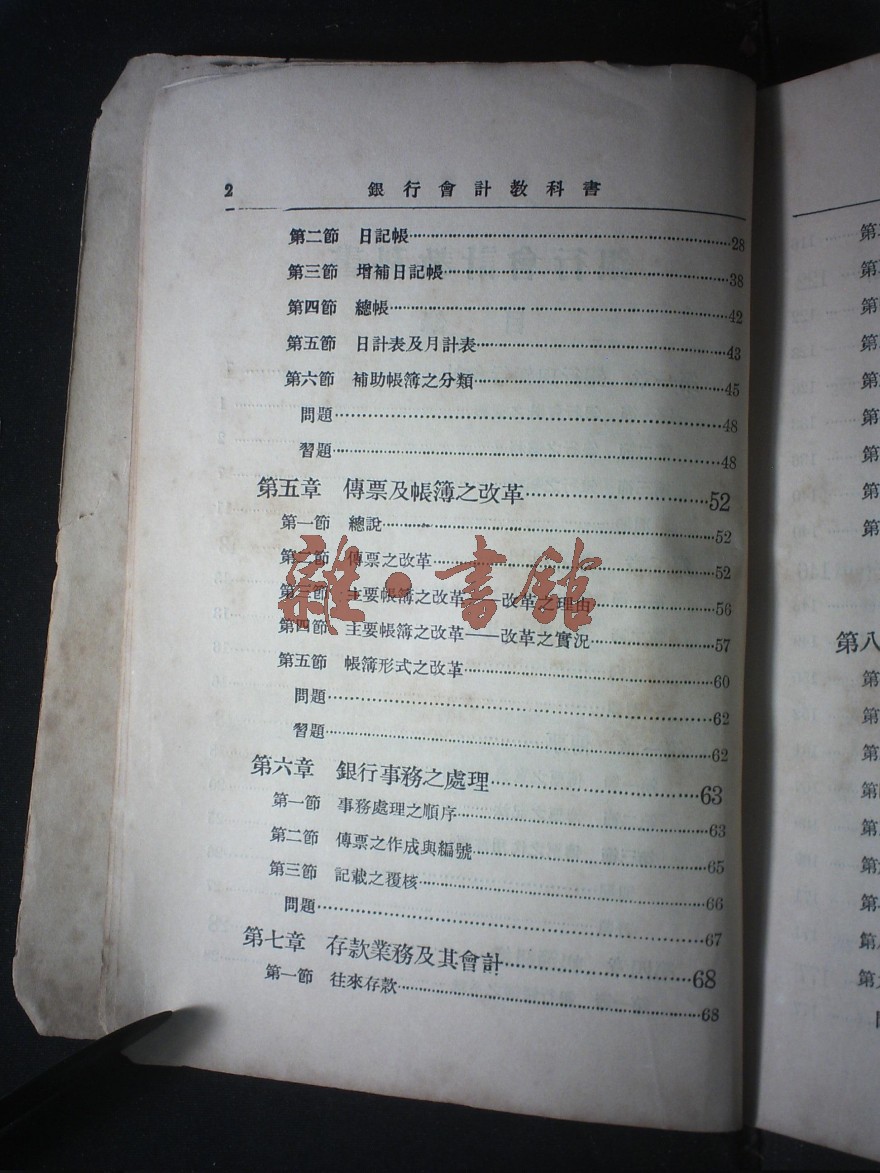 2 銀行會計教科書
第二節 日記帳 28
第三節 增補日記帳 38
第四節 總帳 42
第五節 日計表及月計表 43
第六節 補助帳簿之分類 45
問題 48
習題 48
第五章 傳票及帳簿之改革 52
第一節 總說 52
第二節 傳票之改革 52
第三節 主要帳簿之改革——改革之理由 56
第四節 主要帳簿之改革——改革之實況 57
第五節 帳簿形式之改革 60
問題 62
習題 62
第六章 銀行事務之處理 63
第一節 事務處理之順序 63
第二節 傳票之作成與編號 65
第三節 記載之覆核 66
問題 67
第七章 存款業務及其會計 68
第一節 往來存款 68
雜·書館
第八